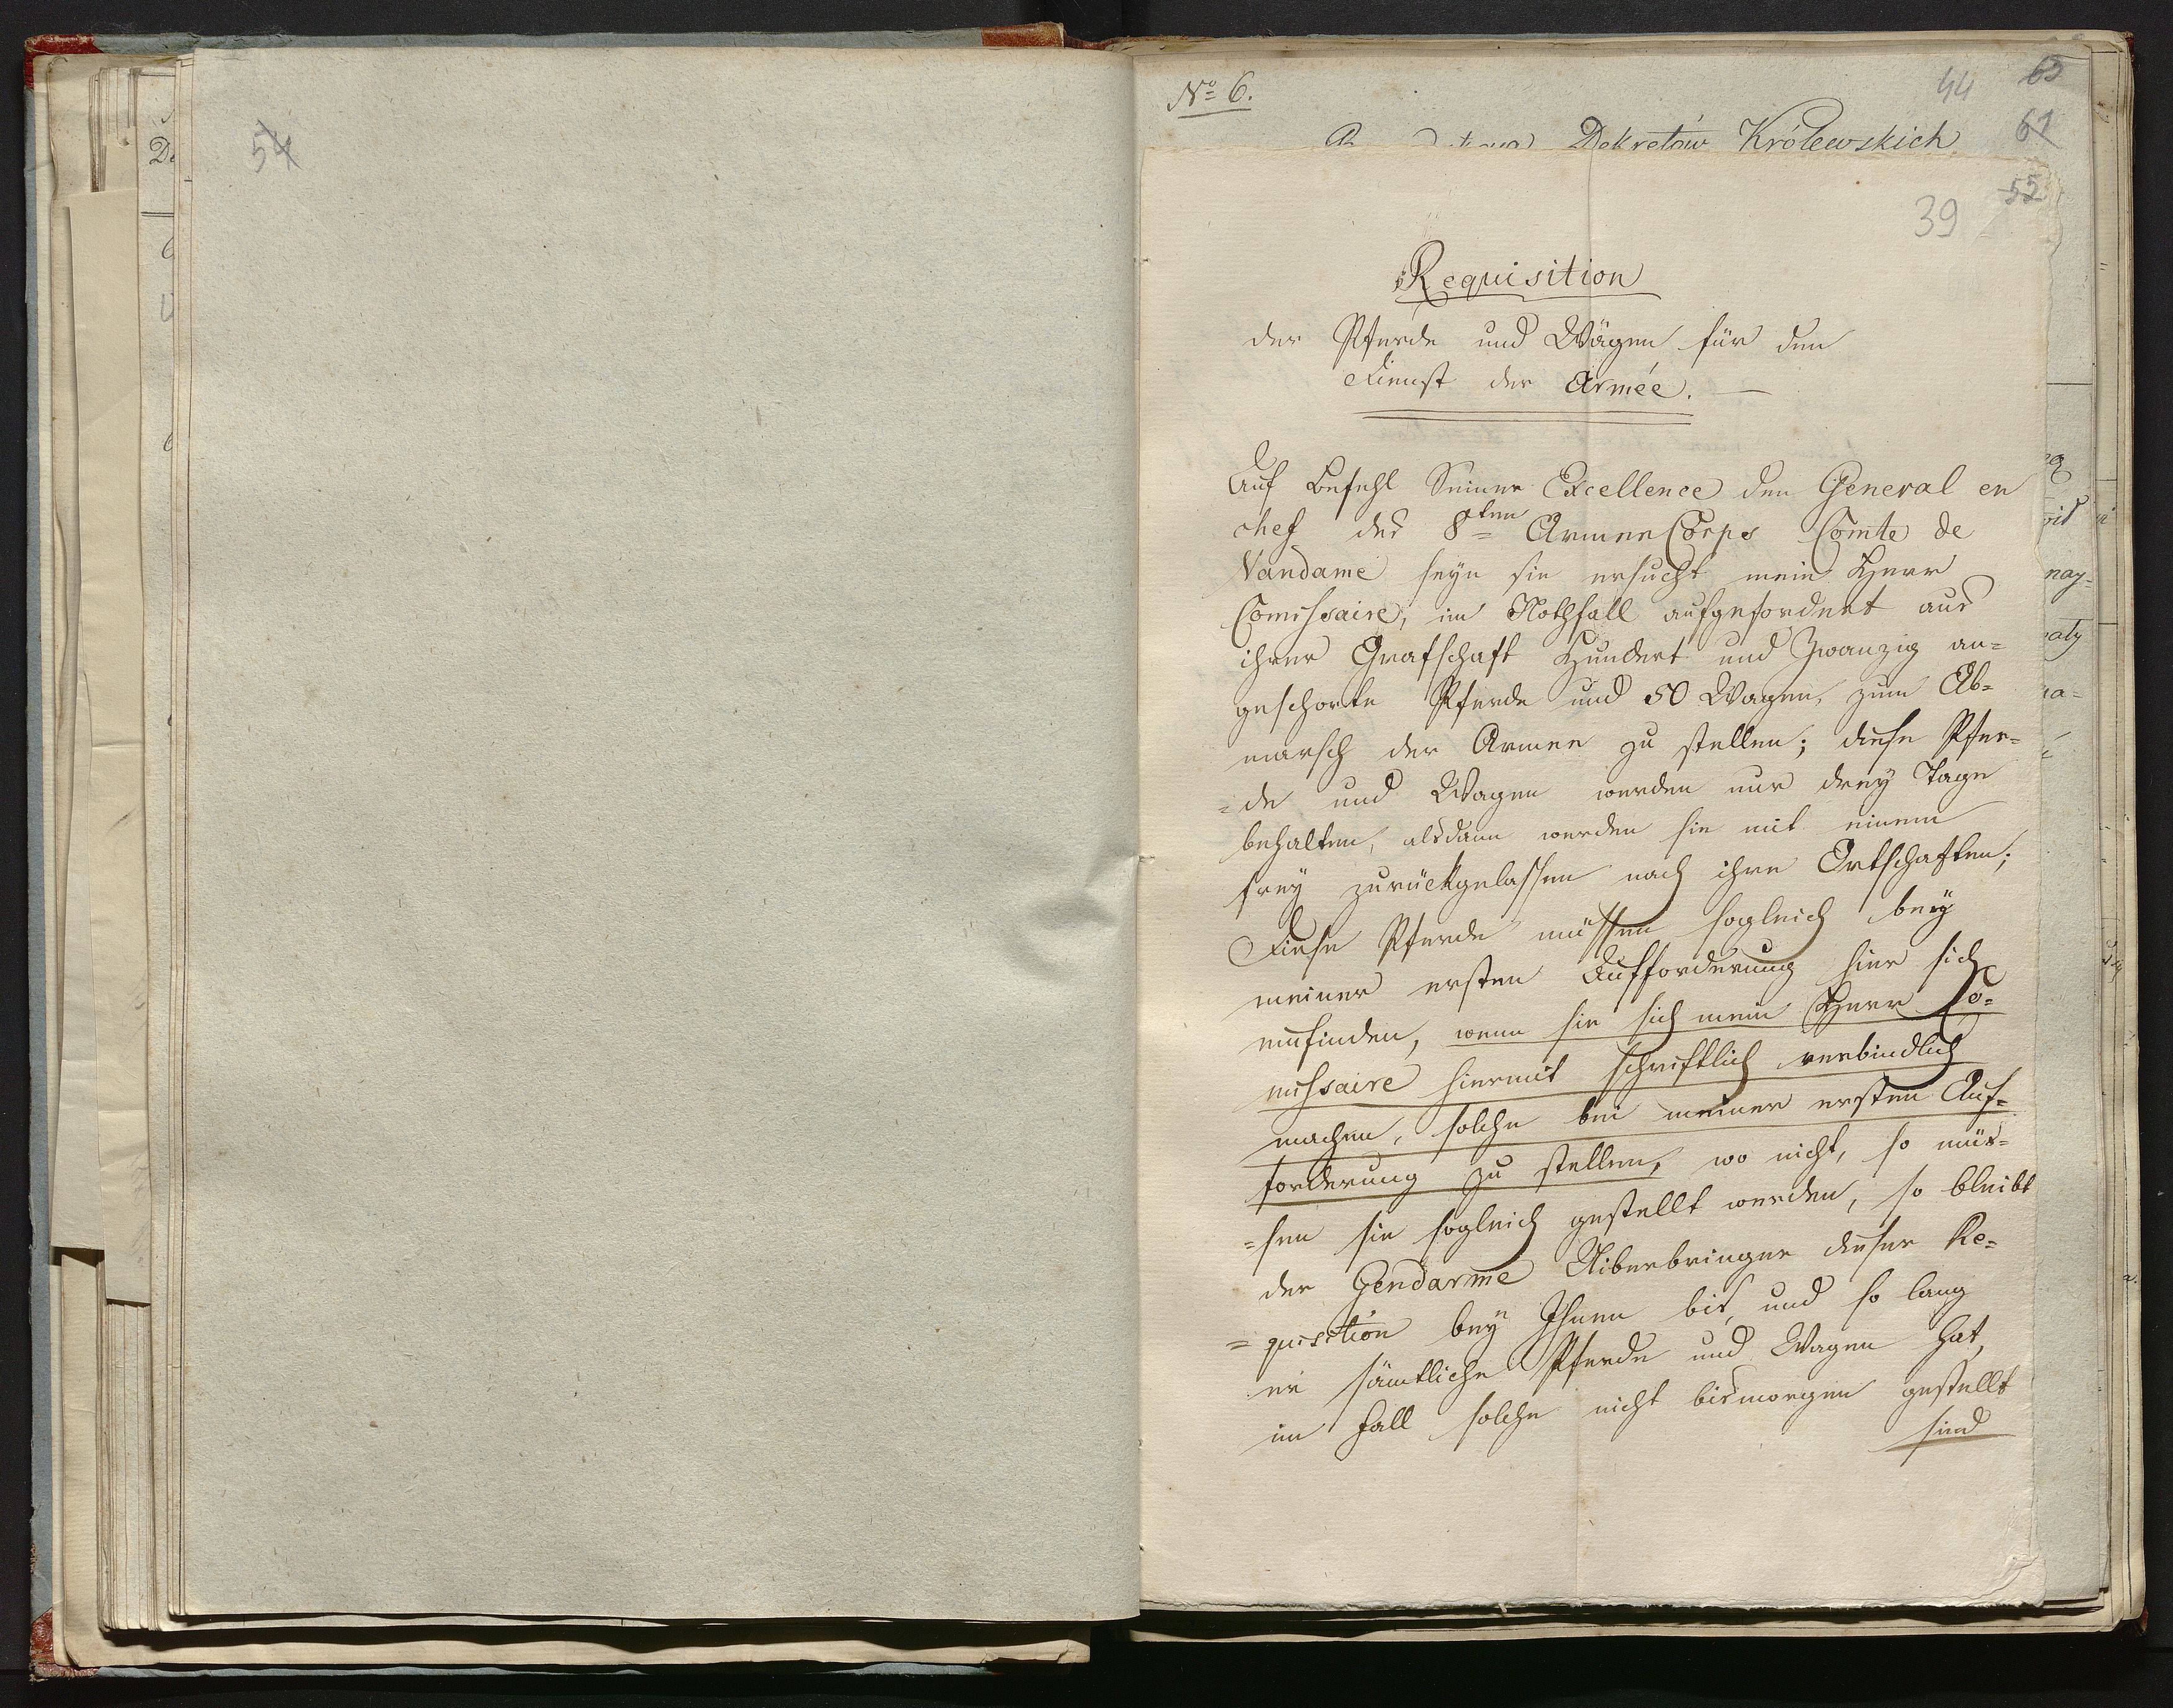 54
No 6.
44 65
Dekretów Królewskich 61
55
39
Requisition
der Pferde und Wägen für den
Dienst der Armée. —
Auf Befehl Seiner Excellence den General en
chef des 8ten Armee Corps Comte de
Vandame seyn sie ersucht mein Herr
Comissaire, im Nothfall aufgefordert aus
ihrer Grafschaft Hundert und Zwanzig an=
geschorte Pferde und 50 Wagen, zum Ab=
marsch der Armee zu stellen; diese Pfer=
=de und Wagen werden nur drey Tage
behalten, alsdann werden sie mit einem
frey zurückgelassen nach ihre Ortschaften;
Diese Pferde müssen sogleich bey
meiner ersten Aufforderung hier sich
einfinden, wenn sie sich mein Herr Co=
missaire hiermit schriftlich verbindlich
machen, solche bei meiner ersten Auf=
forderung zu stellen, wo nicht, so müs=
=sen sie sogleich gestellt werden, so bleibt
der Gendarme Uiberbringer dieser Re=
=quisition bey Ihnen bis, und so lang
er sämtliche Pferde und Wagen hat,
im Fall solche nicht bis morgen gestellt
sind